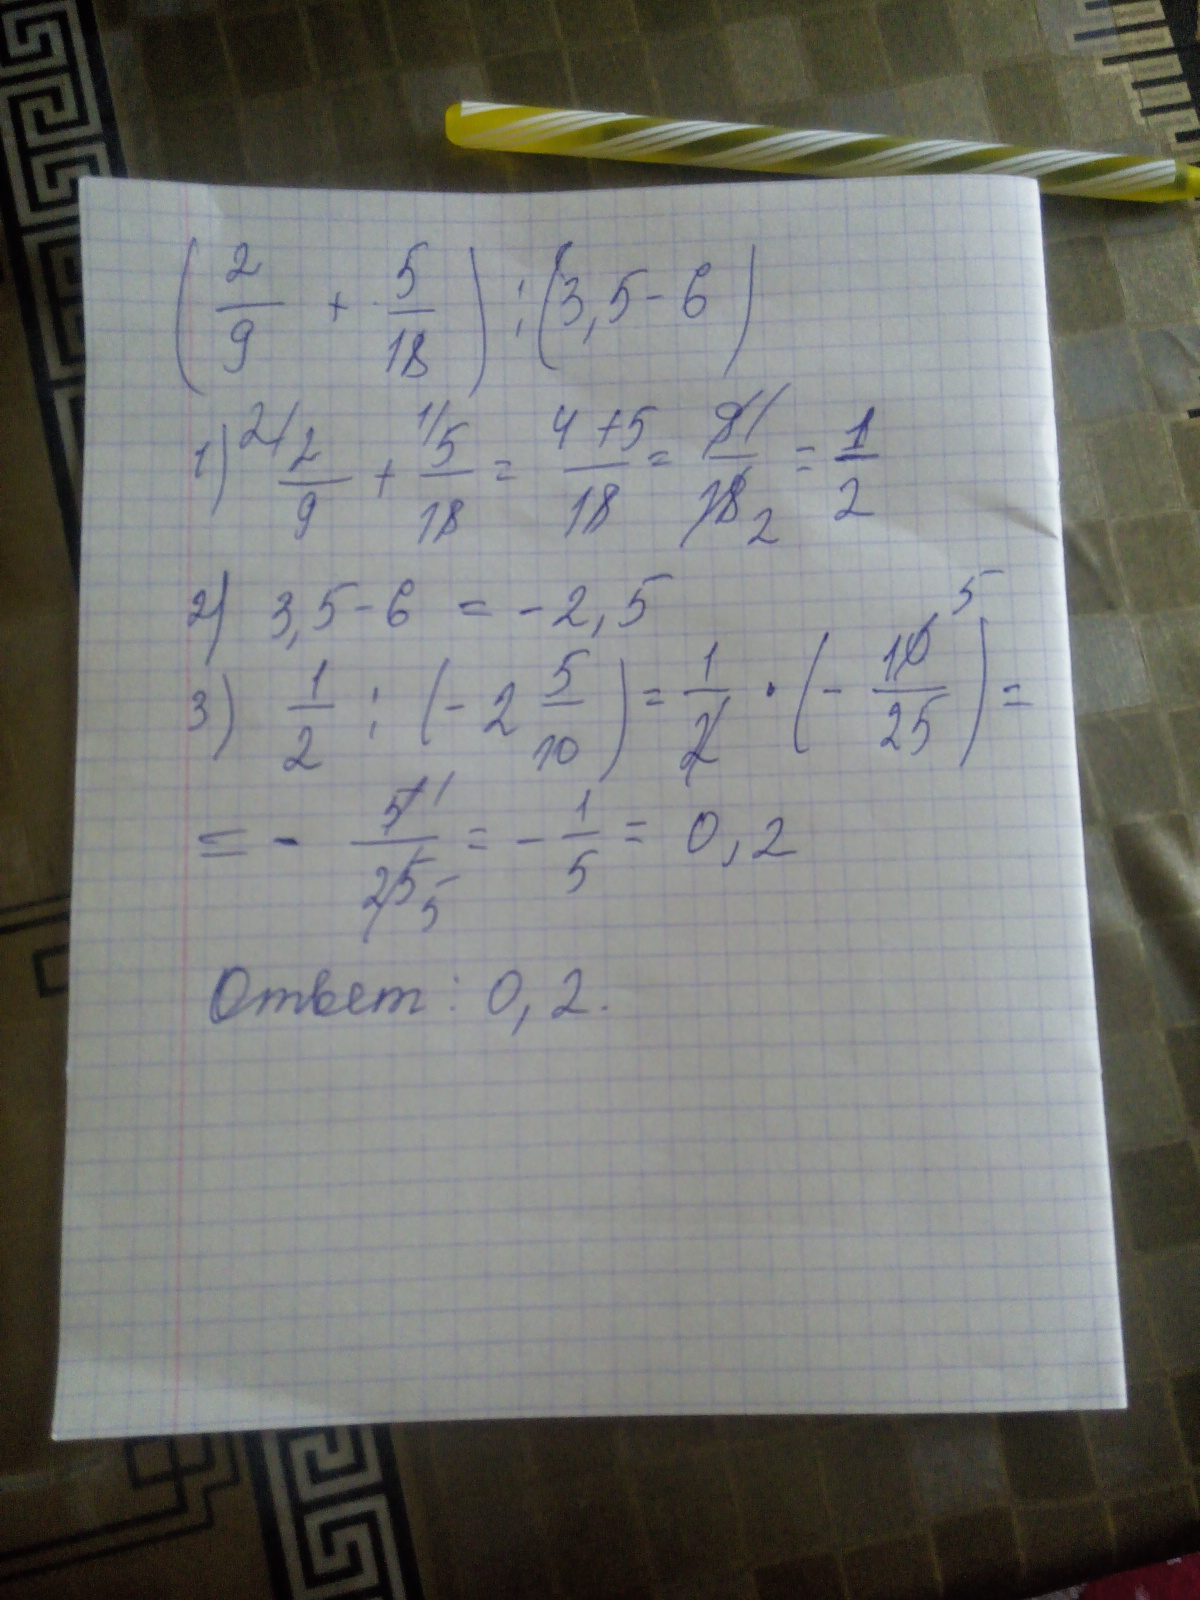 (2/9 + 5/18) : (3,5 - 6)
1) 2/ 2/9 + 1/ 5/18 = 4+5/18 = 9 1/18 2 = 1/2
2) 3,5 - 6 = -2,5
3) 1/2 : (-2 5/10) = 1/2 · (- 10 5/25) =
= - 5 1/25 5 = - 1/5 = 0,2
Ответ: 0,2.